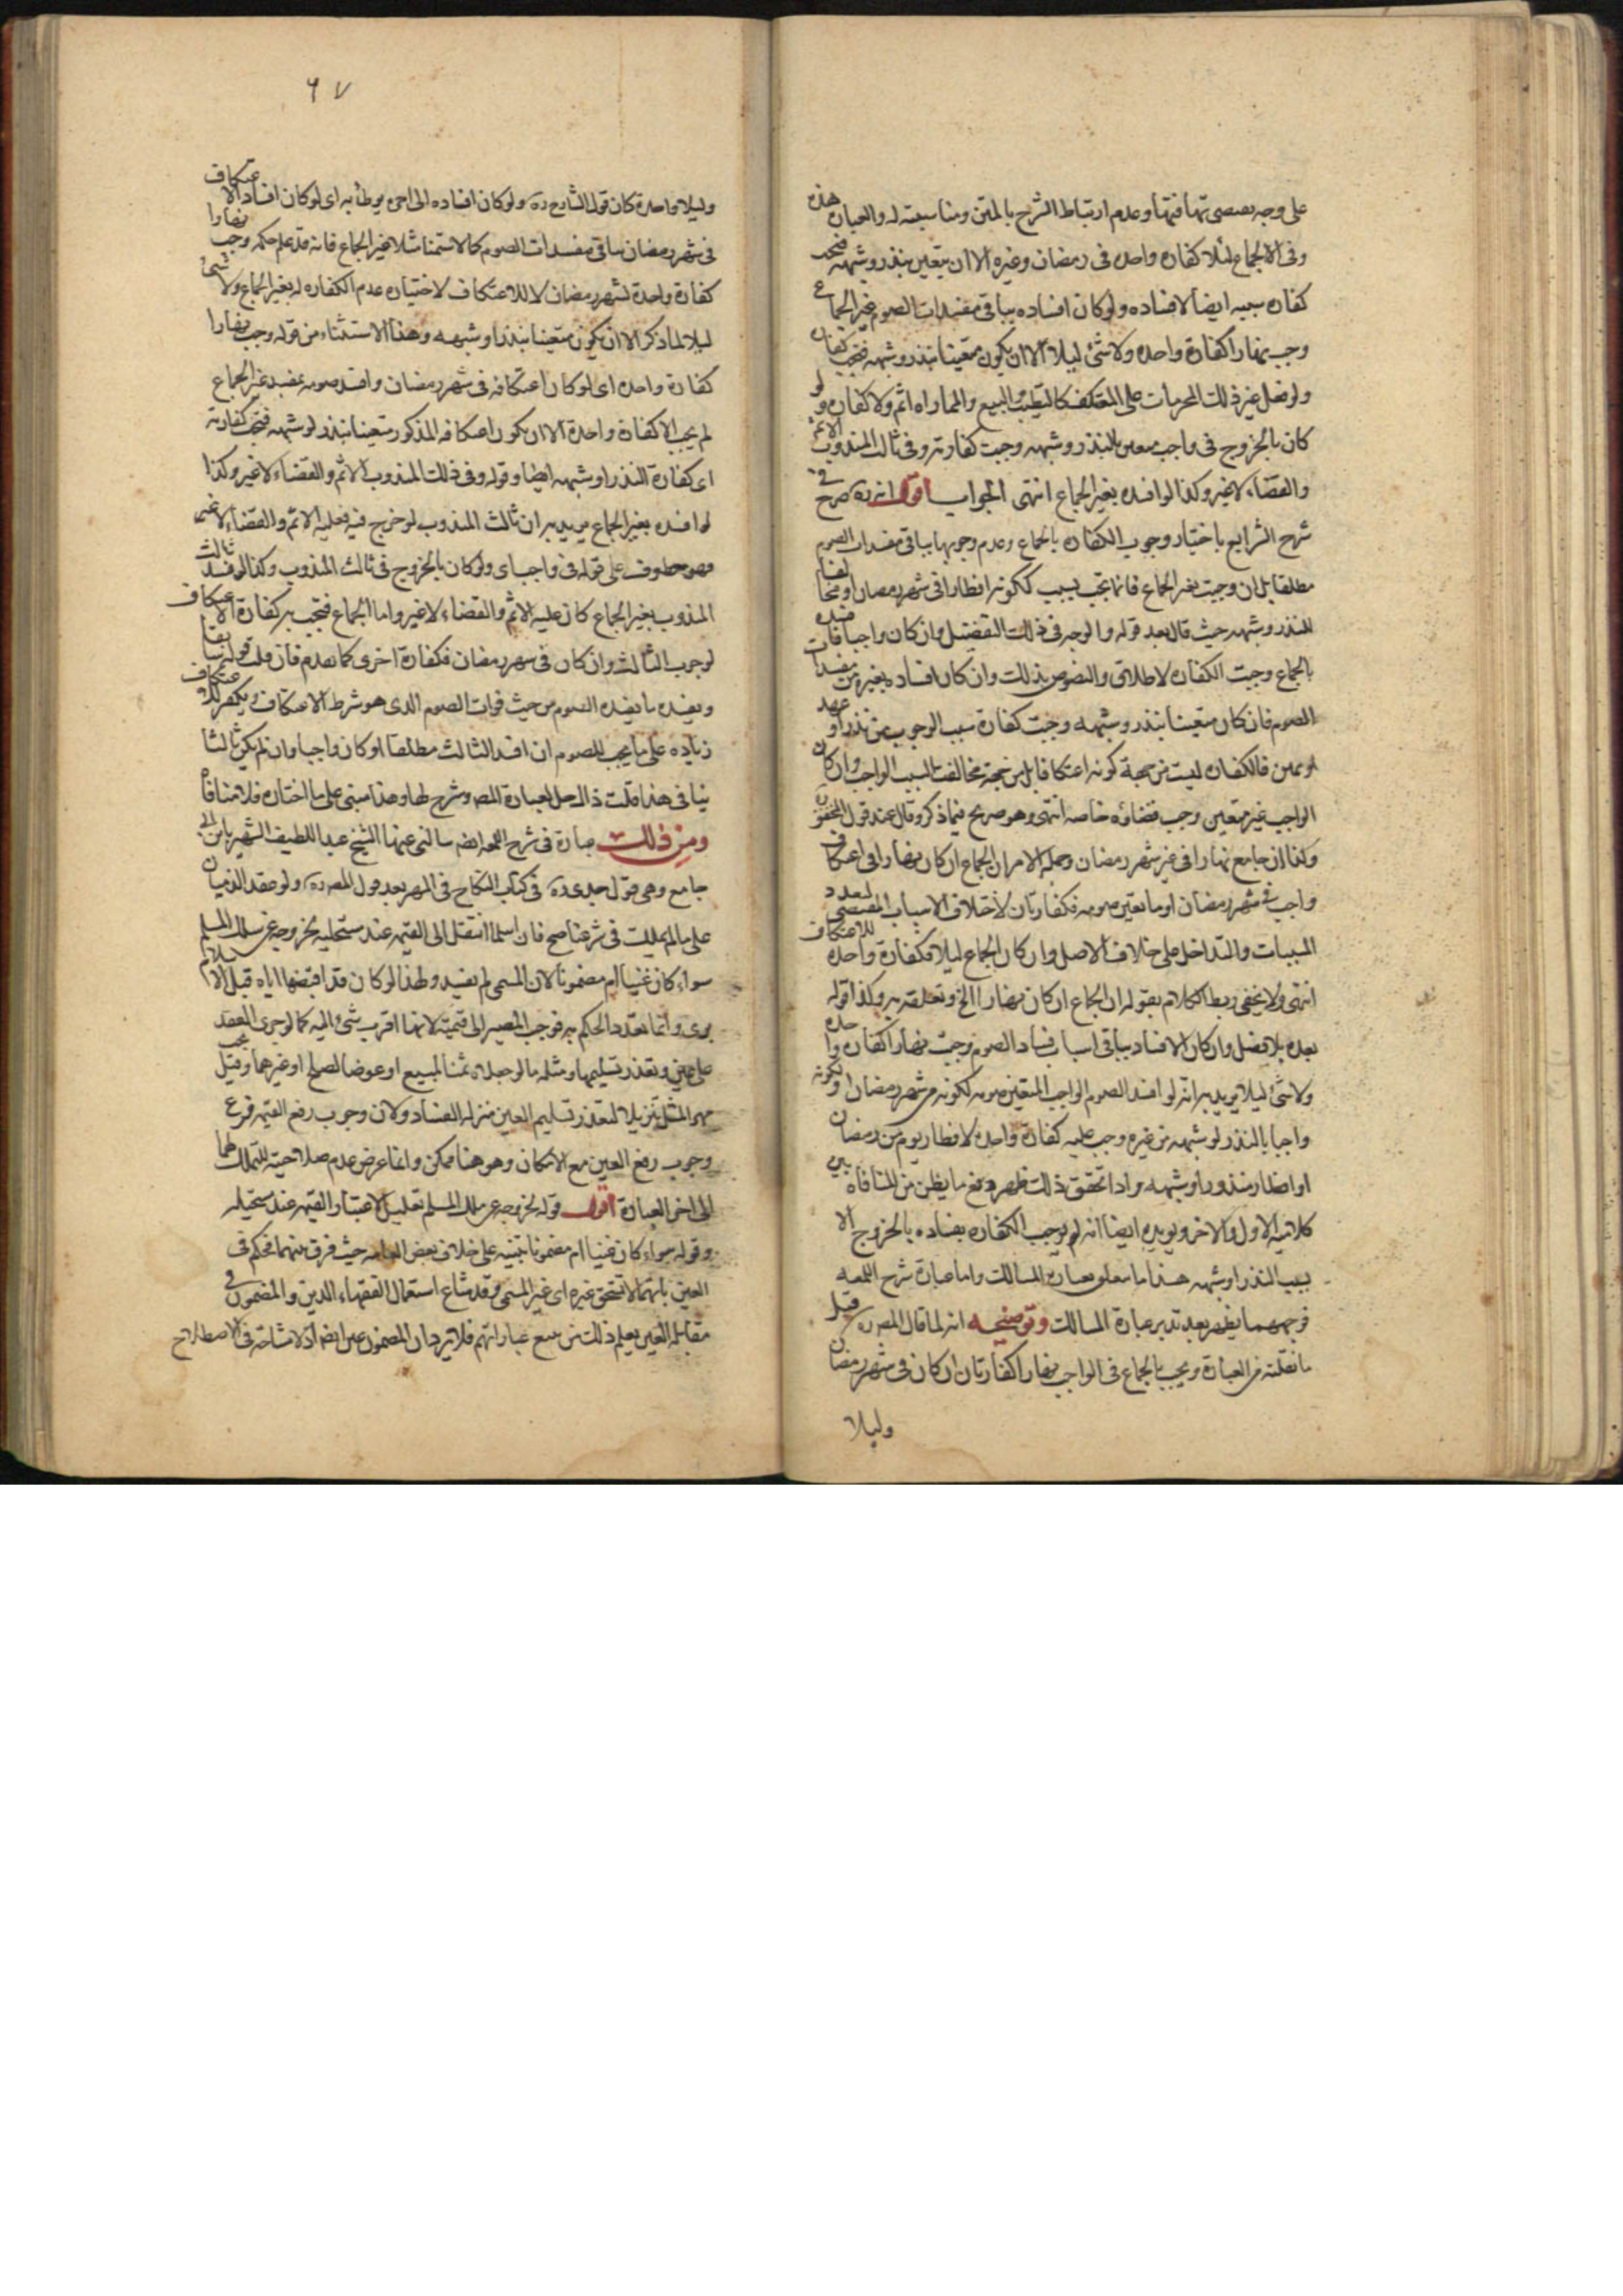 على وجه يقتضى تهافتها وعدم ارتباط الشرح بالمتن ومناسبته له والعبارة هذه
وفى الجماع ليلا كفارة واحدة فى رمضان وغيره الا ان يتعين بنذر وشبهه فتجب
كفارة بسببه ايضا لافساده ولو كان افساده بباقى مفسدات الصوم غير الجماع
وجب نهارا كفارة واحدة ولا شئ ليلا الا ان يكون متعينا بنذر وشبهه فتجب كفارته
ولو فعل غير ذلك المحرمات على المعتكف كالتطيب والبيع والمماراة اثم ولا كفارة ولو
كان بالخروج فى واجب معين بالنذر وشبهه وجبت كفارته وفى ثالث المندوب الاثم
والقضاء لا غير وكذا لو افسده بغير الجماع انتهى الجواب اقول انه ره صرح فى
شرح الشرايع باختيار وجوب الكفارة بالجماع وعدم وجوبها بباقى مفسدات الصوم
مطلقا بل ان وجبت بغير الجماع فانما تجب بسبب ككونه افطارا فى شهر رمضان او مخالفا
للنذر وشبهه حيث قال بعد قوله والوجه فى ذلك التفصيل وان كان واجبا فان افسده
بالجماع وجبت الكفارة لاطلاق النصوص بذلك وان كان افساده بغيره من مفسدات
الصوم فان كان متعينا بنذر وشبهه وجبت كفارة سبب الوجوب من نذر او عهد
او يمين فالكفارة ليست من جهة كونه اعتكافا بل من جهة مخالفته السبب الواجب وان كان
الواجب غير متعين وجب قضاؤه خاصة انتهى وهو صريح فيما ذكر وقال عند قول المحقق ره
وكذا ان جامع نهارا فى غير شهر رمضان وجملة الامر ان الجماع ان كان نهارا فى اعتكاف
واجب فى شهر رمضان او ما تعين صومه فكفارتان لاختلاف الاسباب المقتضى لتعدد
المسببات والتداخل على خلاف الاصل وان كان الجماع ليلا فكفارة واحدة للاعتكاف
انتهى ولا يخفى ربط الكلام بقوله ان الجماع ان كان نهارا الخ وتعلقه به وكذا قوله
بعده بلا فصل وان كان الافساد بباقى اسباب فساد الصوم وجبت نهارا كفارة واحدة
ولا شئ ليلا يريد به انه لو افسد الصوم الواجب المتعين صومه لكونه من شهر رمضان او لكونه
واجبا بالنذر او شبهه من غيره وجب عليه كفارة واحدة لافطار يوم من رمضان
او افطار منذور او شبهه واذا تحقق ذلك ظهر دفع ما يظن من المنافاة بين
كلاميه الاول والاخر ويؤيده ايضا انه لم يوجب الكفارة بفساده بالخروج الا
بسبب النذر او شبهه هذا ما يتعلق بعبارة المسالك واما عبارة شرح اللمعه
فوجهها يظهر بعد تدبر عبارة المسالك وتوضيحه انه لما قال المص ره قبل
ما نقلته من العبارة ويجب بالجماع فى الواجب نهارا كفارتان ان كان فى شهر رمضان
وليلا
٦٧
وليلا واحدة كان قول الشارح ره ولو كان افساده الى اخره يوطأ به اى لو كان افساد الاعتكاف
فى شهر رمضان بباقى مفسدات الصوم كالاستمنا مثلا بغير الجماع فانه قد علم حكمه وجب نهارا
كفارة واحدة لشهر رمضان لا للاعتكاف لاختياره عدم الكفارة له بغير الجماع ولا شئ
ليلا لما ذكر الا ان يكون متعينا بنذر او شبهه وهذا الاستثناء من قوله وجب نهارا
كفارة واحدة اى لو كان اعتكافه فى شهر رمضان وافسد صومه بمفسد غير الجماع
لم يجب الا كفارة واحدة الا ان يكون اعتكافه المذكور متعينا بنذر او شبهه فتجب كفارته
اى كفارة النذر او شبهه ايضا وقوله وفى ذلك المندوب الاثم والقضاء لا غير وكذا
لو افسده بغير الجماع يريد به ان ثالث المندوب لو خرج فيه فعليه الاثم والقضاء لا غير
فهو معطوف على قوله فى واجب اى ولو كان بالخروج فى ثالث المندوب وكذا لو افسد ثالث
المندوب بغير الجماع كان عليه الاثم والقضاء لا غير واما الجماع فتجب به كفارة الاعتكاف
لوجوب الثالث وان كان فى شهر رمضان فكفارة اخرى كما تقدم فان قلت قوله سابقا
ويفسده ما يفسد الصوم من حيث فوات الصوم الذى هو شرط الاعتكاف ويكفر للاعتكاف
زيادة على ما يجب للصوم ان افسد الثالث مطلقا او كان واجبا وان لم يكن ثالثا
ينافى هذا قلت ذاك حل لعبارة المص وشرح لها وهذا مبنى على ما اختاره فلا منافاة
ومن ذلك عبارة فى شرح اللمعه ايضه سالنى عنها الشيخ عبد اللطيف الشهير بابن ابى
جامع وهى قول جدى ره فى كتاب النكاح فى المهر بعد قول المص ره ولو عقد الذميان
على ما لم يملك فى شرعنا صح فان اسلما انتقل الى القيمه عند مستحليه بخروجه عن ملك المسلم
سواء كان عينا ام مضمونا لان المسمى لم يفسد ولهذا لو كان قد اقبضها اياه قبل الاسلام
برئ وانما تعذر الحكم به فوجب المصير الى قيمته لانها اقرب شئ اليه كما لو جرى العقد
على عين وتعذر تسليمها ومثله ما لو جعلاه ثمنا لمبيع او عوضا لصلح او غيرهما وقيل يجب
مهر المثل تنزيلا لتعذر تسليم العين منزلة الفساد ولان وجوب دفع القيمه فرع
وجوب دفع العين مع الامكان وهو هنا ممكن وانما عرض عدم صلاحيته للتملك لهما
الى اخر العبارة اقول قوله بخروجه عن ملك المسلم تعليل لاعتبار القيمه عند مستحيله
وقوله سواء كان عينا ام مضمونا تنبيه على خلاف بعض العامه حيث فرق بينهما فحكم فى
العين بانها لا تستحق غيره اى غير المسمى وقد شاع استعمال الفقهاء الدين والمضمون فى
مقابلة العين يعلم ذلك من تتبع عباراتهم فلا يرد ان المضمون عين ايضا اذ لا مشاحة فى الاصطلاح